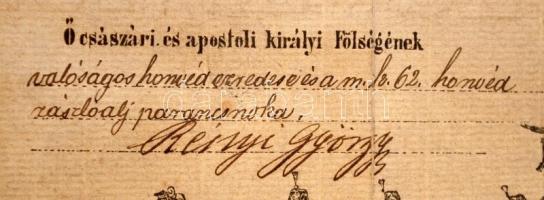 Ő császári és apostoli királyi Fölségének
valóságos honvéd ezredese és a m. k. 62. honvéd
zászlóalj parancsnoka,
Rényi György